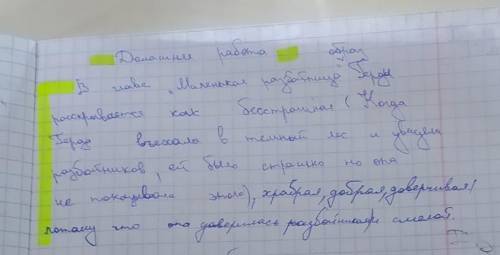 Домашняя работа образ
В главе „Маленькая разбойница" Герды
раскрывается как бесстрашная (Когда
Герда въехала в темный лес и увидела
разбойников, ей было страшно но она
не показывала этого), храбрая, добрая, доверчивая/
потому что она доверилась разбойнице